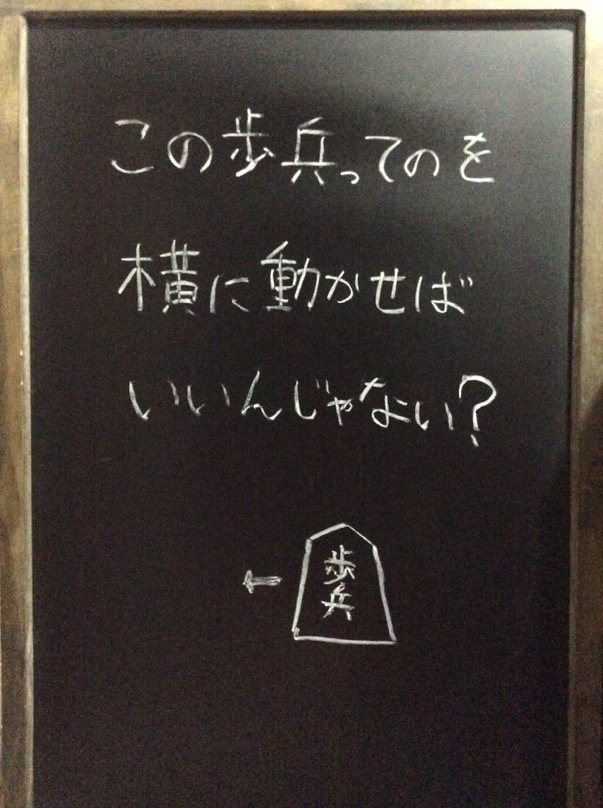 この歩兵ってのを
横に動かせば
いいんじゃない?
←
歩兵